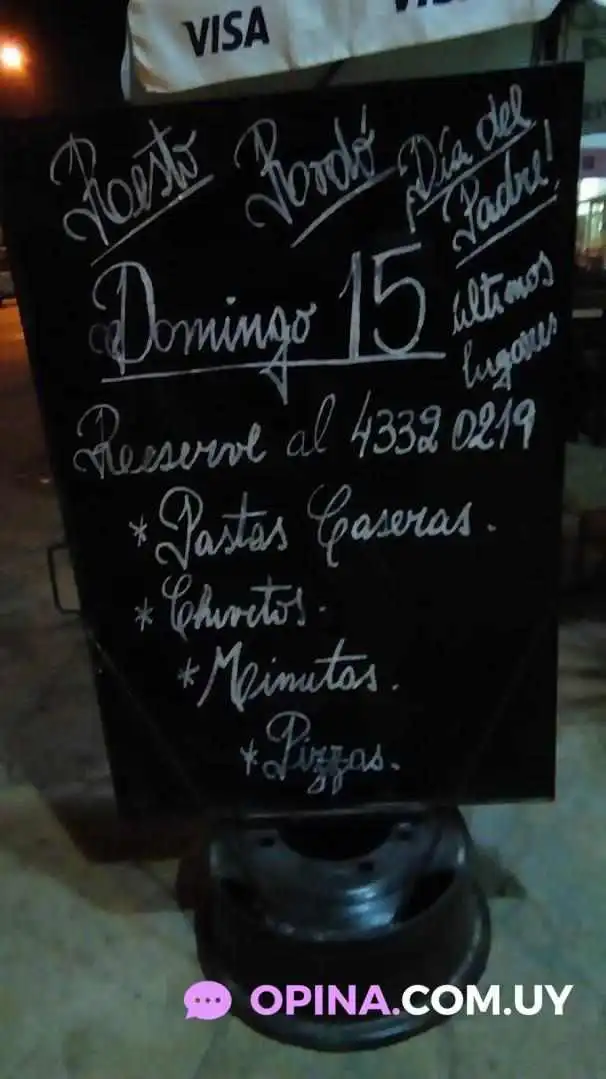 VISA
Resto Rordó ¡Día del
Padre!
Domingo 15 últimos
lugares
Reeserve al 4332 0219
*Pastas Caseras.
*Chivetos.
*Minutas.
*Pizzas.
OPINA.COM.UY